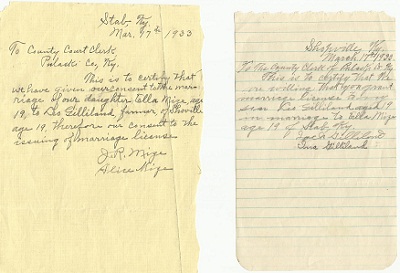 Stab, Ky.
Mar. 17th 1933
To County Court Clerk
Pulaski Co, Ky.
This is to certify that
we have given our consent to the mar-
riage of our daughter Ella Mize age
19, to Leo Gilliland farmer of
age 19, therefore our consent to the
issuing of marriage license
J.R. Mize
Alice Mize
Ky.
March 17th 1933
To The County Clerk of Pulaski Co Ky.
This is to certify that We
are willing that you grant
marriage license to
Leo Gilliland aged 19
in marriage to Ella Mize
age 19 of Stab Ky
Gilliland
Gilliland